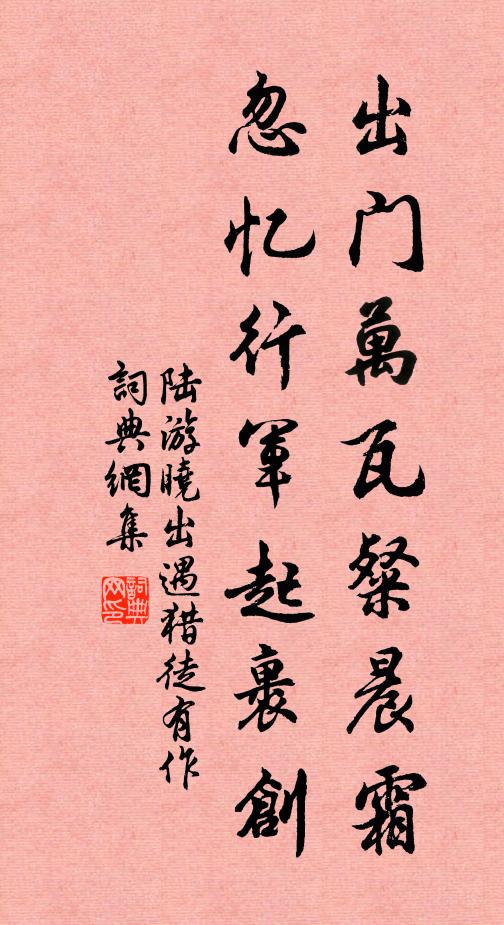 出门萬瓦粲晨霜
忽忆行軍起裹創
陆游曉出遇猎徒有作
詞典網集
詞典
网印